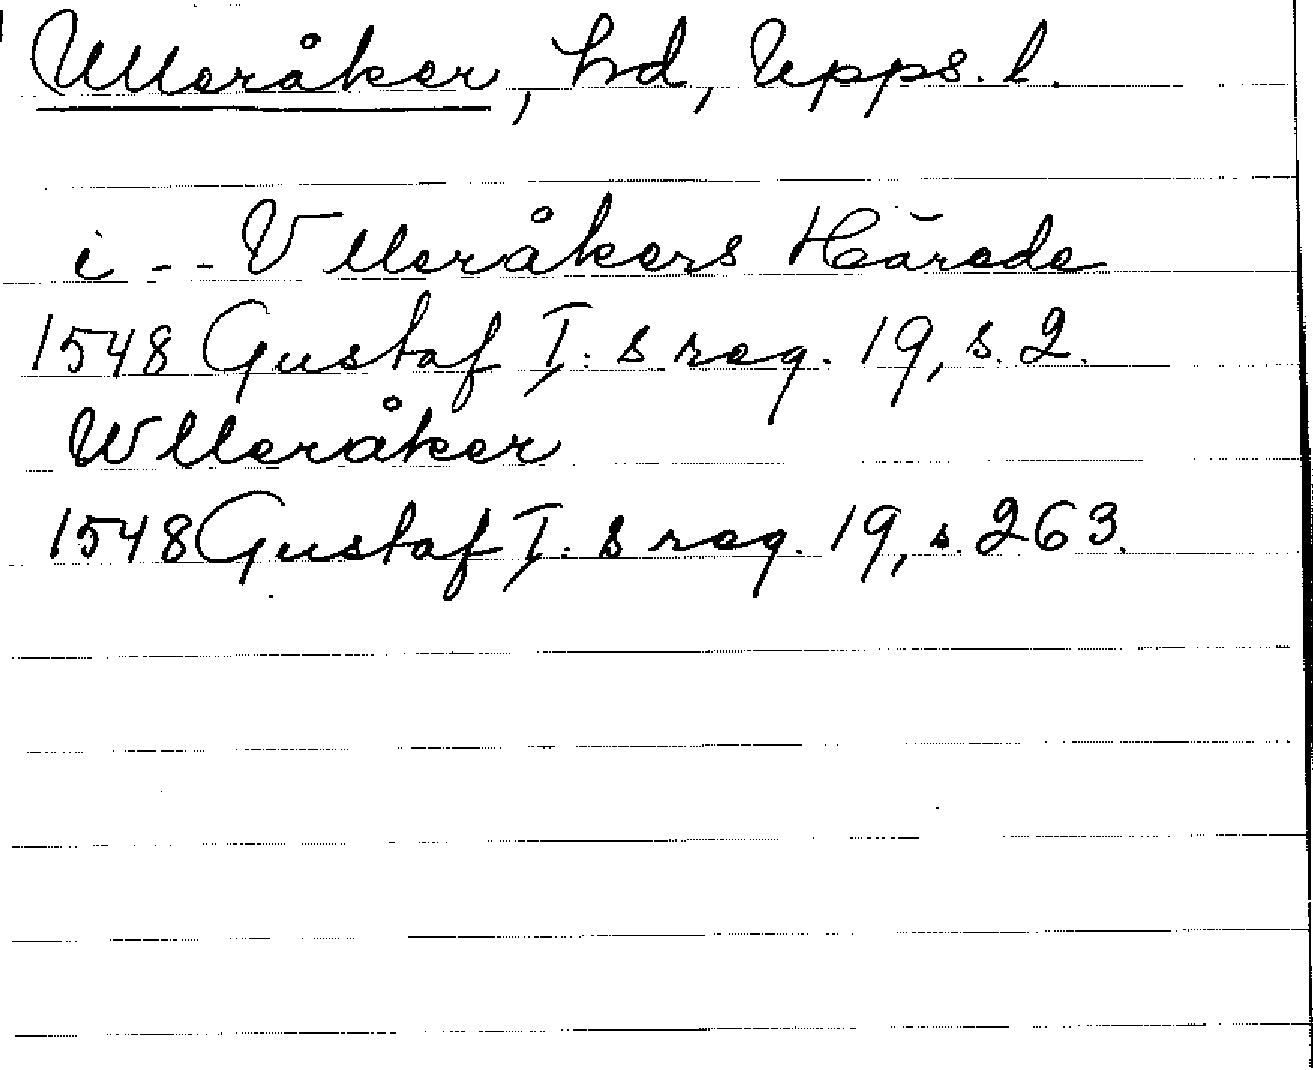 Ulleråker, hd, Upps. l.
i -- Vlleråkers Härede
1548 Gustaf I:s reg. 19, s. 2.
Wlleråker
1548 Gustaf I:s reg. 19, s. 263.